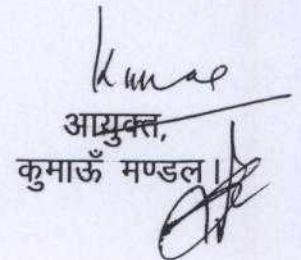 आयुक्त,
कुमाऊँ मण्डल।